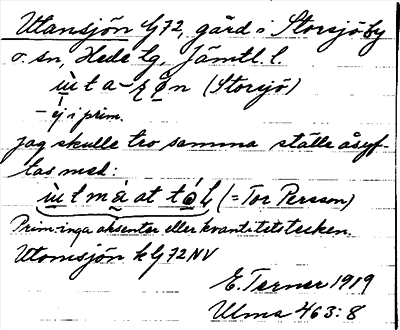 Utansjön kG 72, gård i Storsjö by
o. sn, Hede tg, Jämtl. l.
ù̀ t a - ʂ ø̨ n (Storsjö)
- ej i prim.
jag skulle tro samma ställe åsyf-
tas med:
ù̀ t m á at t ó L (= Tor Persson)
Prim. inga aksenter eller kvantitetstecken.
Utomsjön kG 72 NV
E. Terner 1919
Ulma 463:8